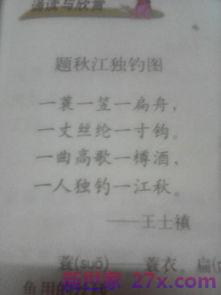 诵读与欣赏
题秋江独钓图
一蓑一笠一扁舟，
一丈丝纶一寸钩。
一曲高歌一樽酒，
一人独钓一江秋。
——王士禛
蓑(suō)——蓑衣。 扁(
27x.com